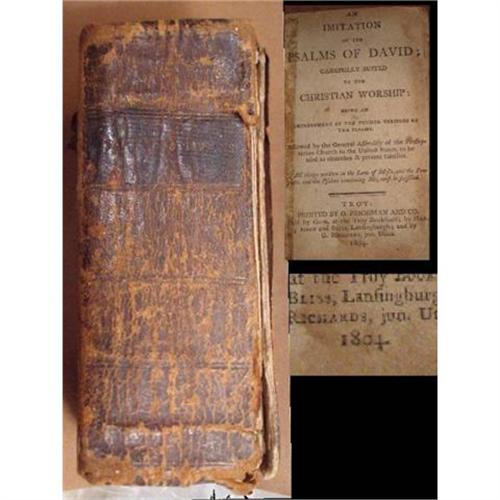 AN
IMITATION
OF THE
PSALMS OF DAVID;
CAREFULLY SUITED
TO THE
CHRISTIAN WORSHIP:
BEING AN
IMPROVEMENT OF THE FORMER VERSIONS OF
THE PSALMS.
Allowed by the General Assembly of the Presby-
terian Church in the United States, to be
used in churches & private families.
All things written in the Law of Moses, and the Pro-
phets, and the Psalms concerning Me, must be fulfilled.
TROY:
PRINTED BY O. PENNIMAN AND CO.
Sold by them, at the Troy Bookstore; by
and Bliss, Lansingburgh; and by
G. RICHARDS, jun. Utica.
1804.
at the Troy Book
BLISS, Lansingburg
RICHARDS, jun. Ut
1804.